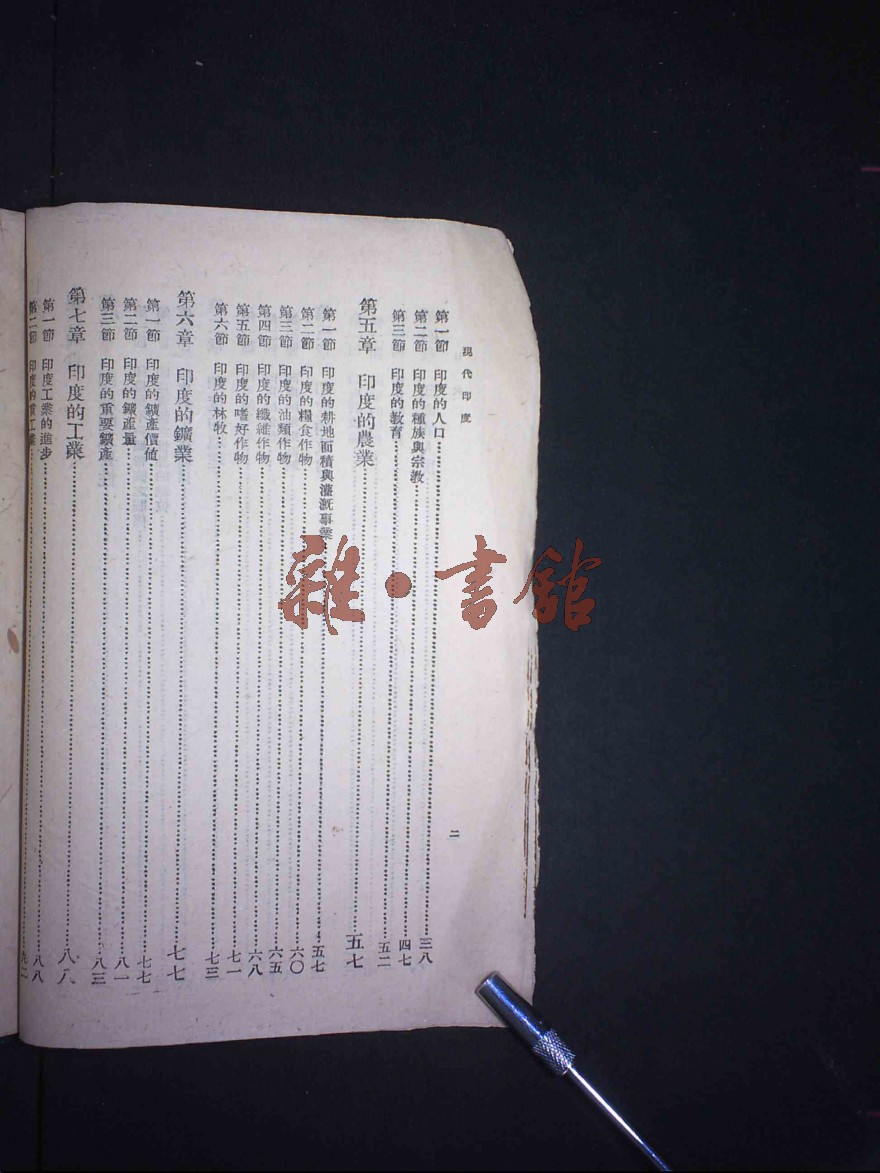 現代印度
二
第一節 印度的人口 三八
第二節 印度的種族與宗教 四七
第三節 印度的教育 五二
第五章 印度的農業 五七
第一節 印度的耕地面積與灌漑事業 五七
第二節 印度的糧食作物 六〇
第三節 印度的油類作物 六五
第四節 印度的纖維作物 六八
第五節 印度的嗜好作物 七一
第六節 印度的林牧 七三
第六章 印度的鑛業 七七
第一節 印度的鑛產價値 七七
第二節 印度的鑛產量 八一
第三節 印度的重要鑛產 八三
第七章 印度的工業 八八
第一節 印度工業的進步 八八
第二節 印度的 工業 九二
雜·書館